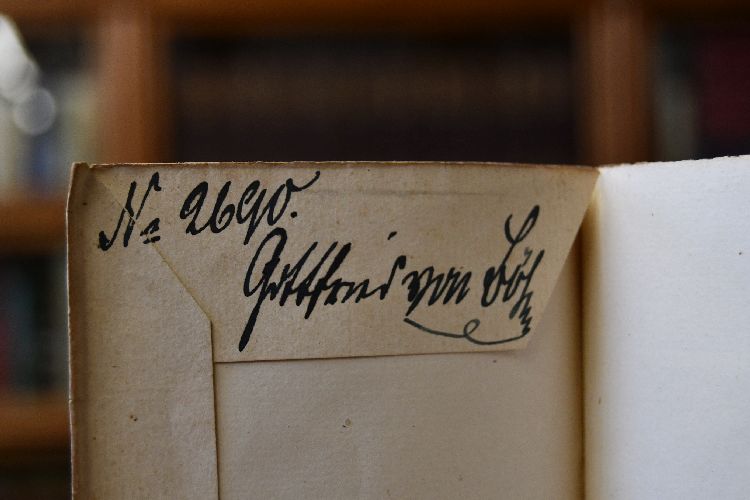 No 2690.
Gottfried von Böhm